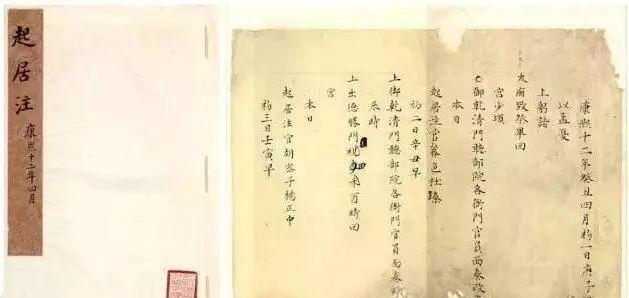 起居注
康熙十二年四月
康熙十二年癸丑四月初一日庚子
以孟夏
上躬詣
太廟致祭畢回
宮少頃
上御乾清門聽部院各衙門官員面奏政
本日
起居注官喇色杜臻
初二日辛丑早
上御乾清門聽部院各衙門官員面奏
辰時
上出德勝門
酉時回
宮
本日
起居注官胡密子楊正中
初三日壬寅早